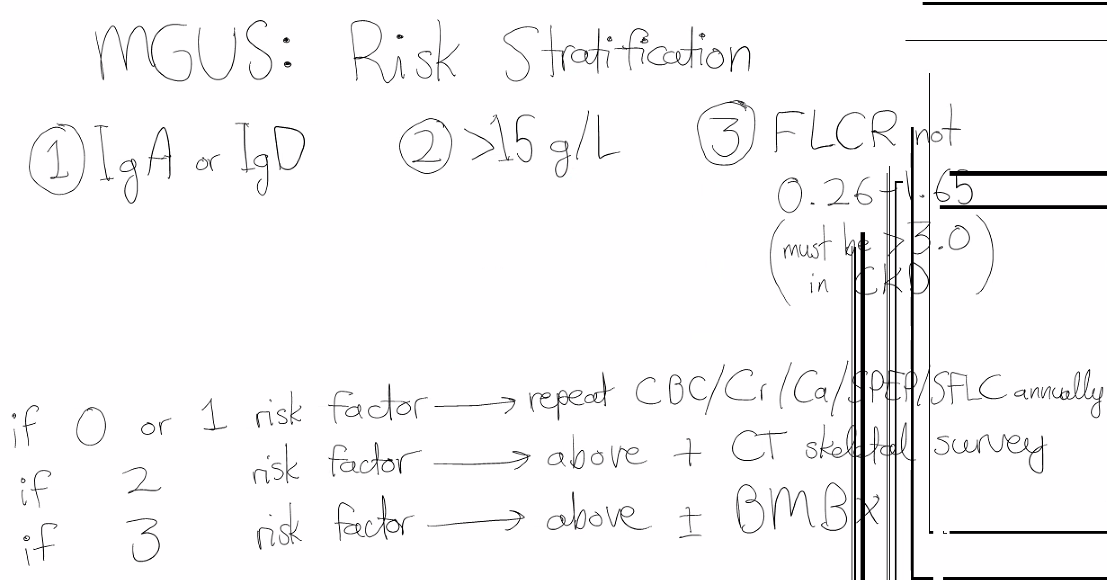 MGUS: Risk Stratification
① IgA or IgD ② >15 g/L ③ FLCR not
0.26-1.65
(must be > 3.0
in CKD)
if 0 or 1 risk factor → repeat CBC/Cr/Ca/SPEP/SFLC annually
if 2 risk factor → above + CT skeletal survey
if 3 risk factor → above ± BMBx